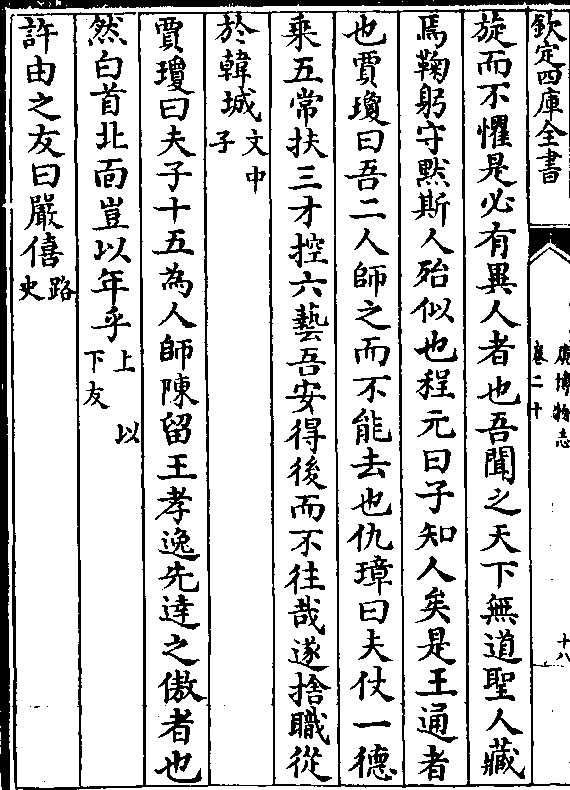 欽定四庫全書
廣博物志
卷二十
十八
旋而不懼是必有異人者也吾聞之天下無道聖人藏
焉鞠躬守黙斯人殆似也程元曰子知人矣是王通者
也賈瓊曰吾二人師之而不能去也仇璋曰夫仗一德
乘五常扶三才控六藝吾安得後而不往哉遂捨職從
於韓城文中子
賈瓊曰夫子十五為人師陳留王孝逸先達之傲者也
然白首北面豈以年乎上以下友
許由之友曰嚴僖路史